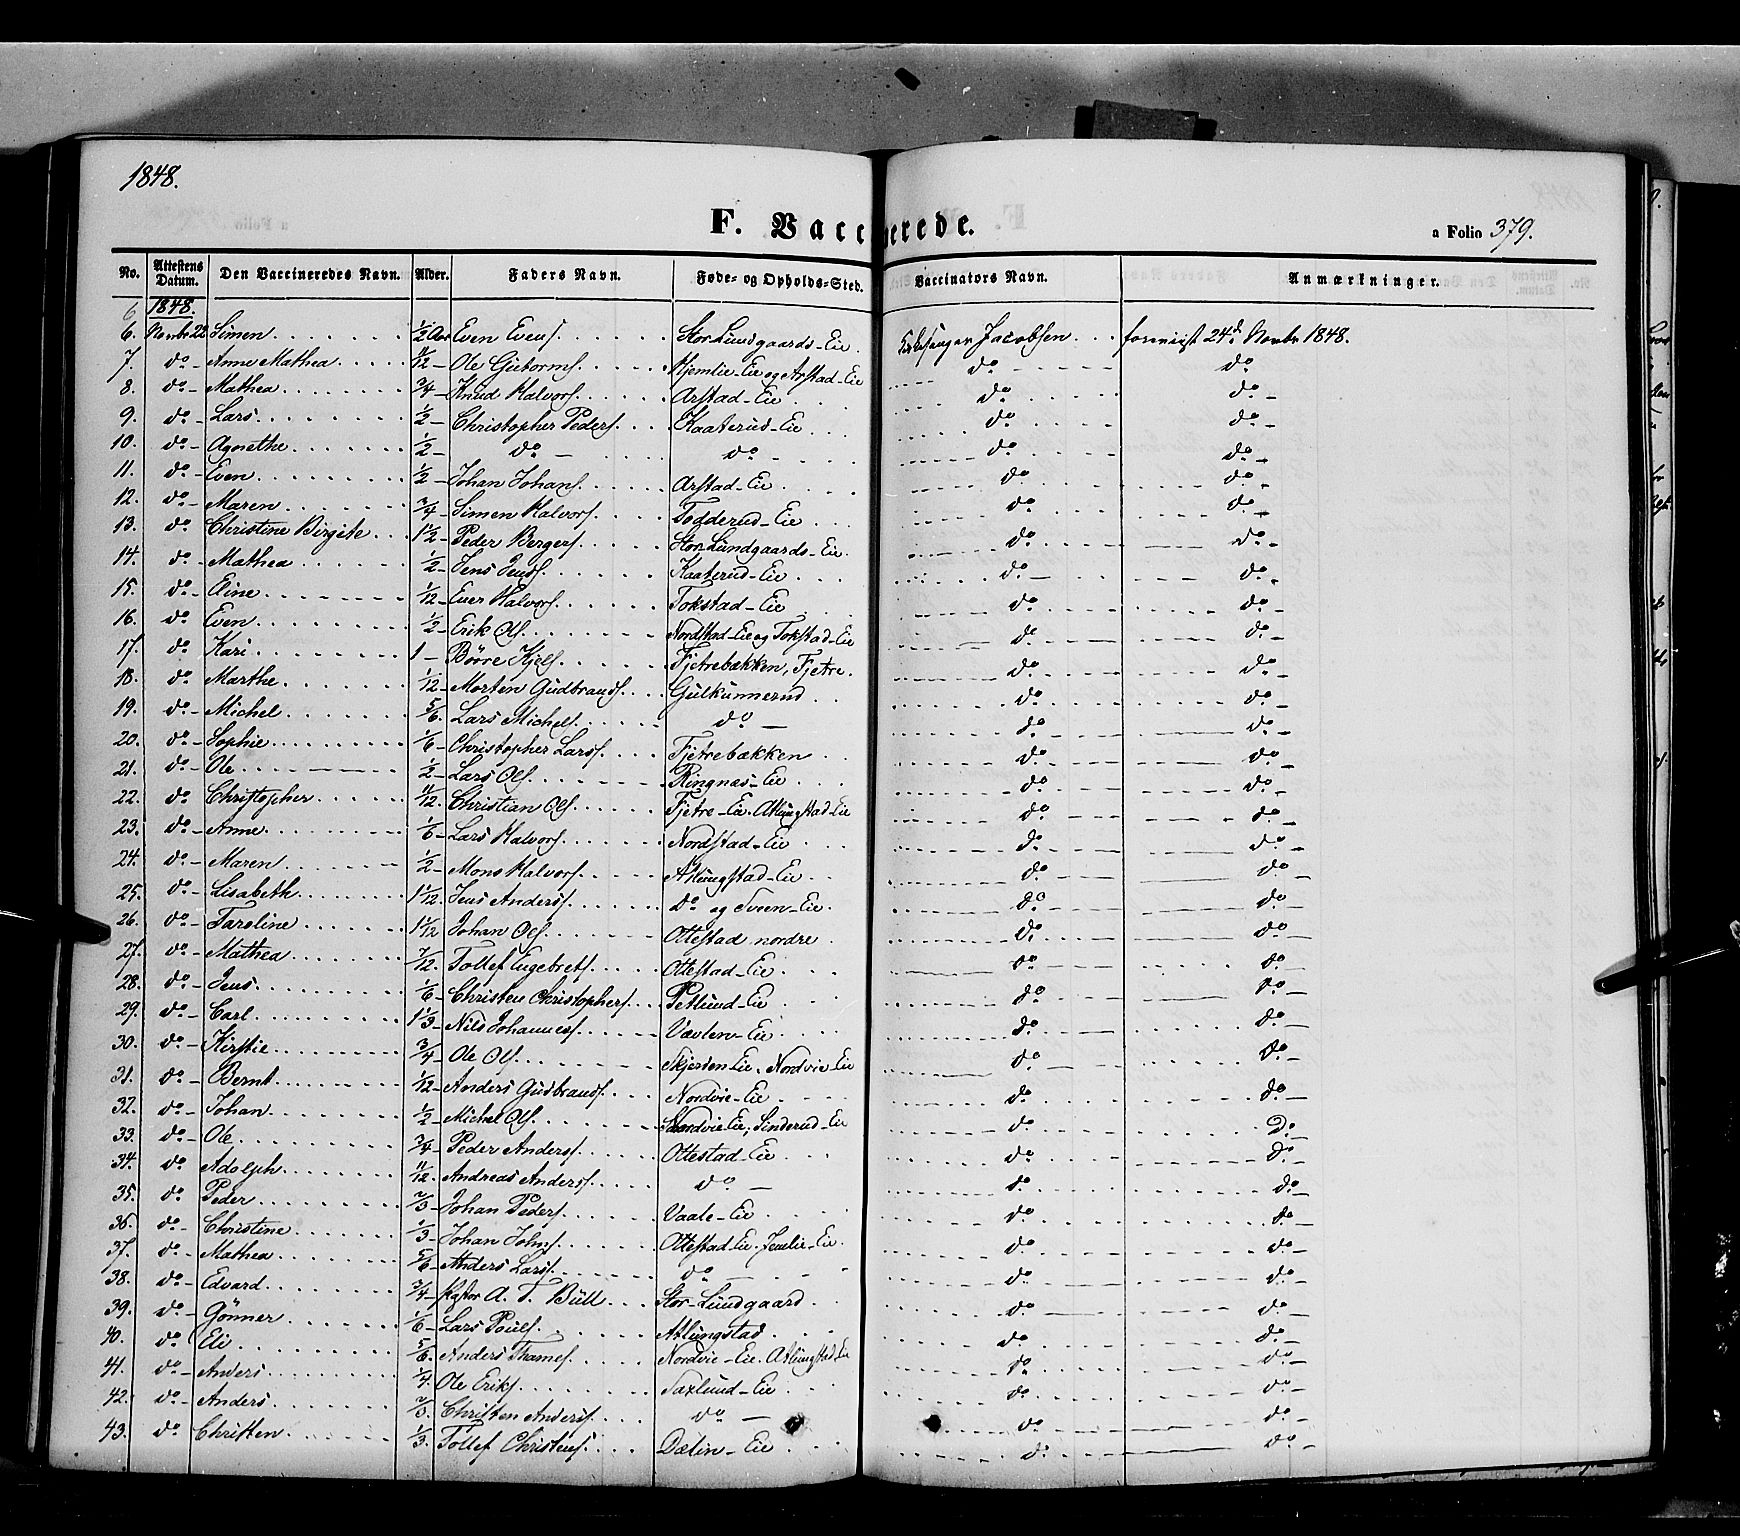 1848.
F. Vaccinerede.
a Folio 379.
No. Attestens Datum. Den Vaccineredes Navn. Alder. Faders Navn. Føde- og Opholds-Sted. Vaccinators Navn. Anmærkninger.
1848.
6. Novbr 22 Simen 1/2 Aar Even Evens. Stor Lundgaards-Eie Kirkesanger Jacobsen foreviist 24d Novbr 1848.
7. do Anne Mathea 5/12 Ole Guttorms. Hjemlie-Eie og Arstad-Eie do do
8. do Mathea 3/4 Knud Halvors. Arstad-Eie do do
9. do Lars 1/2 Christopher Peders. Kaaterud-Eie do do
10. do Agnethe 1/2 do do do do
11. do Even 1/2 Johan Johans. Arstad-Eie do do
12. do Maren 3/4 Simen Halvors. Todderud-Eie do do
13. do Christine Birgite 1 1/2 Peder Bergers. Stor Lundgaards-Eie do do
14. do Mathea 1/2 Jens Jens. Kaaterud-Eie do do
15. do Eline 1/12 Euer Halvors. Tokstad-Eie do do
16. do Even 1/2 Erik Ols. Nordstad-Eie og Tokstad-Eie do do
17. do Kari 1 Børre Kjels. Fjetrebækken, Fjetre. do do
18. do Marthe 1/12 Morten Gudbrands. Gulkunnerud do do
19. do Michel 5/6 Lars Michels. do do do
20. do Sophie 1/6 Christopher Lars. Fjetrebækken do do
21. do Ole 1/2 Lars Ols. Ringnæs-Eie do do
22. do Christopher 11/12 Christian Ols. Fjetre-Eie. Atlungstad-Eie do do
23. do Anne 1/6 Lars Halvors. Nordstad-Eie do do
24. do Maren 1/2 Mons Halvors. Atlungstad-Eie do do
25. do Lisabeth 1 1/12 Jens Anders. do og Sveen-Eie. do do
26. do Karoline 1 1/12 Johan Ols. Ottestad nordre do do
27. do Mathea 7/12 Tollef Engebrets. Ottestad-Eie do do
28. do Jens 1/6 Christen Christophers. Petlund-Eie do do
29. do Carl 1 1/3 Nils Johannes. Vævlen-Eie do do
30. do Kirstie 3/4 Ole Ols. Skjerden Eie. Nordvie-Eie do do
31. do Bernt 1/12 Anders Gudbrands. Nordvie-Eie do do
32. do Johan 1/2 Michel Ols. Nordvie Eie; Sinderud-Eie do do
33. do Ole 3/4 Peder Anders. Ottestad-Eie do do
34. do Adolph 11/12 Andreas Anders. do do do
35. do Peder 2/3 Johan Peders. Vaale-Eie do do
36. do Christine 1/3 Johan Johns. Ottestad-Eie. Jemlie-Eie. do do
37. do Mathea 5/6 Anders Lars. do do do
38. do Edvard 3/4 Pastor A. T. Büll Stor-Lundgaard do do
39. do Gønner 1/6 Lars Pouls. Atlungstad do do
40. do Eli 5/6 Anders Thames. Nordvie-Eie. Atlungstad Eie do do
41. do Anders 1/4 Ole Eriks. Saxlund-Eie do do
42. do Anders 2/3 Christen Anders. do do do
43. do Christen 1/3 Tollef Christens. Dælin-Eie do do